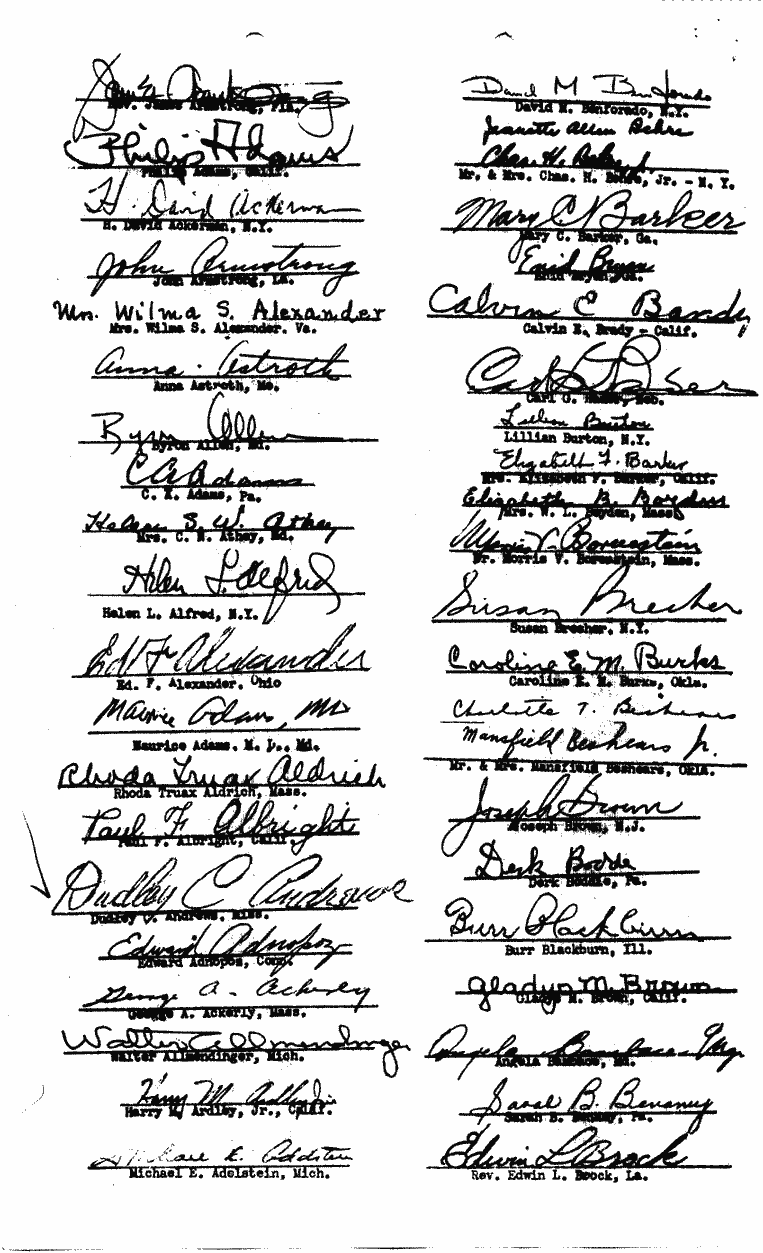 Rev. James Armstrong, Fla.
Philip Adams
Philip Adams, Calif.
H. David Ackerman
H. David Ackerman, N.Y.
John Armstrong
John Armstrong, La.
Mrs. Wilma S. Alexander
Mrs. Wilma S. Alexander. Va.
Anna Astroth
Anna Astroth, Mo.
Byron Allen
Byron Allen, Md.
C A Adams
Pa.
Helen S. W. Athey
Mrs. C. N. Athey, Md.
Helen L. Alfred
Helen L. Alfred, N.Y.
Ed F Alexander
Ed. F. Alexander. Ohio
Maurice Adams, MD
Maurice Adams. M. D., Md.
Rhoda Truax Aldrich
Rhoda Truax Aldrich, Mass.
Paul F Albright
Paul F. Albright, Calif.
Dudley C Andrews
Dudley C. Andrews. Miss.
Edward Adnopoz
Edward Adnopoz, Conn.
George A. Ackerly
George A. Ackerly, Mass.
Walter Allmendinger
Walter Allmendinger, Mich.
Harry M Ardley Jr.
Harry M. Ardley, Jr., Calif.
Michael E. Adelstein
Michael E. Adelstein, Mich.
David M Benforado
David M. Benforado, N.Y.
Jeanette Allen Behre
Chas. H. Behre Jr
Mr. & Mrs. Chas. H. Behre, Jr. - N. Y.
Mary C Barker
Mary C. Barker, Ga.
Enid Bryan
Enid Bryan, Ga.
Calvin E
Calvin E. - Calif.
Carl G.
Carl G. Neb.
Lillian Burton
Lillian Burton, N.Y.
Elizabeth F. Barker
Mrs. Elizabeth F. Barker, Calif.
Elizabeth B. Boyden
Mrs. W. L. Boyden, Mass.
Morris V. Borenstein
Mr. Morris V. Borenstein, Mass.
Susan Brecher
Susan Brecher. N.Y.
Caroline E. M. Burks
Caroline E. M. Burks, Okla.
Charlotte T. Beshears
Mansfield Beshears Jr.
Mr. & Mrs. Mansfield Beshears, OKLA.
Joseph Brown
Joseph Brown, N.J.
Derk Bodde
Derk Boddie, Pa.
Burr Blackburn
Burr Blackburn, Ill.
Gladys M. Brown
Gladys M. Brown, Calif.
Angela
Angela Md.
Sarah B.
Sarah B. Pa.
Edwin L Brock
Rev. Edwin L. Brock, La.